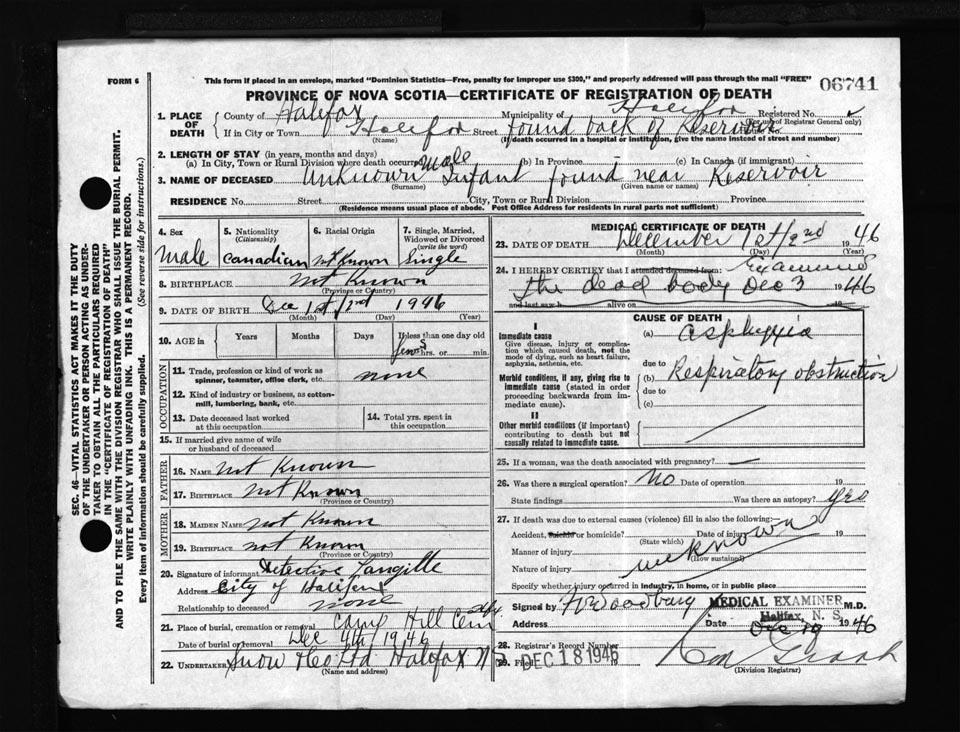 FORM 6
This form if placed in an envelope, marked "Dominion Statistics—Free, penalty for improper use $300," and properly addressed will pass through the mail "FREE"
06741
PROVINCE OF NOVA SCOTIA—CERTIFICATE OF REGISTRATION OF DEATH
1. PLACE OF DEATH County of Halifax Municipality of Halifax Registered No. (For use of Registrar General only)
If in City or Town Halifax Street found back of Reservoir
(Name) (If death occurred in a hospital or institution, give the name instead of street and number)
2. LENGTH OF STAY (in years, months and days)
(a) In City, Town or Rural Division where death occurred (b) In Province (c) In Canada (if immigrant)
3. NAME OF DECEASED Unknown Male Infant found near Reservoir
(Surname) (Given name or names)
RESIDENCE No. Street City, Town or Rural Division Province
(Residence means usual place of abode. Post Office Address for residents in rural parts not sufficient)
4. Sex Male
5. Nationality (Citizenship) Canadian
6. Racial Origin not known
7. Single, Married, Widowed or Divorced (write the word) Single
8. BIRTHPLACE not known
(Province or Country)
9. DATE OF BIRTH Dec 1st/2nd 1946
(Month) (Day) (Year)
10. AGE in Years Months Days If less than one day old few hrs. or min.
OCCUPATION
11. Trade, profession or kind of work as spinner, teamster, office clerk, etc. none
12. Kind of industry or business, as cotton-mill, lumbering, bank, etc.
13. Date deceased last worked at this occupation
14. Total yrs. spent in this occupation
15. If married give name of wife or husband of deceased
FATHER
16. NAME not known
17. BIRTHPLACE not known
(Province or Country)
MOTHER
18. MAIDEN NAME not known
19. BIRTHPLACE not known
(Province or Country)
20. Signature of informant Detective Langille
Address City of Halifax
Relationship to deceased none
21. Place of burial, cremation or removal Camp Hill Cem Hfx
Date of burial or removal Dec 4th 1946
22. UNDERTAKER Snow & Co Ltd Halifax N S
(Name and address)
MEDICAL CERTIFICATE OF DEATH
23. DATE OF DEATH December 1st/2nd 1946
(Month) (Day) (Year)
24. I HEREBY CERTIFY that I attended deceased from: Examined
the dead body Dec 3 1946
and last saw h alive on 19
CAUSE OF DEATH
I
Immediate cause
Give disease, injury or complication which caused death, not the mode of dying, such as heart failure, asphyxia, asthenia, etc.
(a) Asphyxia
due to
Morbid conditions, if any, giving rise to immediate cause (stated in order proceeding backwards from immediate cause).
(b) Respiratory obstruction
due to
(c)
II
Other morbid conditions (if important) contributing to death but not causally related to immediate cause.
25. If a woman, was the death associated with pregnancy?
26. Was there a surgical operation? No Date of operation 19
State findings Was there an autopsy? yes
27. If death was due to external causes (violence) fill in also the following:
Accident, suicide or homicide? Date of injury 19
(State which)
Manner of injury unknown
(How sustained)
Nature of injury
Specify whether injury occurred in industry, in home, or in public place
Signed by M.D.
MEDICAL EXAMINER
Halifax, N. S.
Address Date Dec 19 1946
28. Registrar's Record Number
29. Filed DEC 18 1946
(Division Registrar)
SEC. 46—VITAL STATISTICS ACT MAKES IT THE DUTY
OF THE UNDERTAKER OR PERSON ACTING AS UNDERTAKER TO OBTAIN ALL THE PARTICULARS REQUIRED
IN THE "CERTIFICATE OF REGISTRATION OF DEATH"
AND TO FILE THE SAME WITH THE DIVISION REGISTRAR WHO SHALL ISSUE THE BURIAL PERMIT.
WRITE PLAINLY WITH UNFADING INK. THIS IS A PERMANENT RECORD.
Every item of information should be carefully supplied. (See reverse side for instructions.)